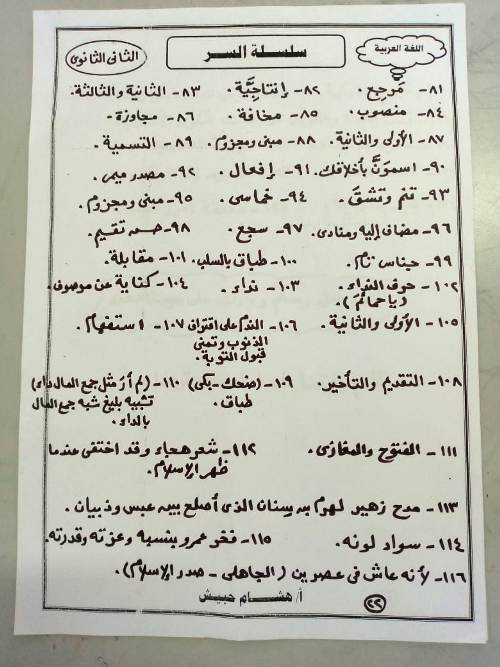 اللغة العربية
سلسلة السر
الثانى الثانوى
٨١- مَرجِع. ٨٢- إنتاجيَّة. ٨٣- الثانية والثالثة.
٨٤- منصوب. ٨٥- مخافة. ٨٦- مجاوزة.
٨٧- الأولى والثانية. ٨٨- مبنى ومجزوم. ٨٩- التسمية.
٩٠- اسموَنَّ بأخلاقك. ٩١- إفعال. ٩٢- مصدر ميمى.
٩٣- تنم وتشقَ. ٩٤- خماسى. ٩٥- مبنى ومجزوم.
٩٦- مضاف إليه ومنادى. ٩٧- سجع. ٩٨- حسن تقسيم.
٩٩- جناس تام. ١٠٠- طباق بالسلب. ١٠١- مقابلة.
١٠٢- حرف النداء ١٠٣- نداء. ١٠٤- كناية عن موصوف.
(يا حمائم).
١٠٥- الأولى والثانية. ١٠٦- الندم على اقتراف ١٠٧- استفهام.
الذنوب وتمنى
قبول التوبة.
١٠٨- التقديم والتأخير. ١٠٩- (ضحك - بكى) ١١٠- (لم أر مثل جمع المال داء)
طباق. تشبيه بليغ شبه جمع المال
بالداء.
١١١- الفتوح والمغازى. ١١٢- شعر هجاء وقد اختفى عندما
ظهر الإسلام.
١١٣- مدح زهير لهرم بن سنان الذى أصلح بين عبس وذبيان.
١١٤- سواد لونه. ١١٥- فخر عمرو بنسبه وعزته وقدرته.
١١٦- لأنه عاش فى عصرين (الجاهلى - صدر الإسلام).
أ/ هشام حبيش
٢٢